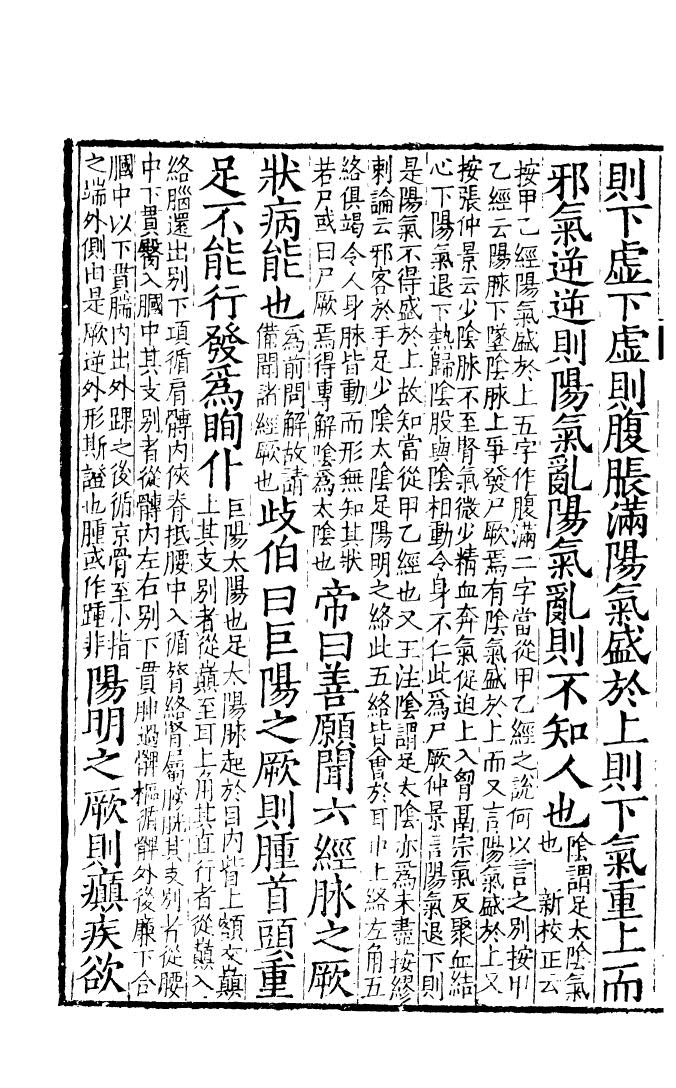 則下虛下虛則腹脹滿陽氣盛於上則下氣重上而
邪氣逆逆則陽氣亂陽氣亂則不知人也陰謂足太陰氣
也 新校正云
按甲乙經陽氣盛於上五字作腹滿二字當從甲乙經之說何以言之别按甲
乙經云陽脉下墜陰脉上爭發尸厥焉有陰氣盛於上而又言陽氣盛於上又
按張仲景云少陰脉不至腎氣微少精血奔氣促迫上入胷鬲宗氣反聚血結
心下陽氣退下熱歸陰股與陰相動令身不仁此爲尸厥仲景言陽氣退下則
是陽氣不得盛於上故知當從甲乙經也又王注陰謂足太陰亦爲未盡按繆
刺論云邪客於手足少陰太陰足陽明之絡此五絡皆會於耳中上絡左角五
絡俱竭令人身脉皆動而形無知其狀
若尸或曰尸厥焉得專解陰爲太陰也
帝曰善願聞六經脉之厥
狀病能也
爲前問解故請
備聞諸經厥也
歧伯曰巨陽之厥則腫首頭重
足不能行發爲眴仆
巨陽太陽也足太陽脉起於目内眥上額交巓
上其支别者從巓至耳上角其直行者從巓入
絡腦還出别下項循肩髆内俠脊抵腰中入循膂絡腎屬膀胱其支别者從腰
中下貫臀入膕中其支别者從髆内左右别下貫胂過髀樞循髀外後廉下合
膕中以下貫腨内出外踝之後循京骨至小指
之端外側由是厥逆外形斯證也腫或作踵非
陽明之厥則癲疾欲